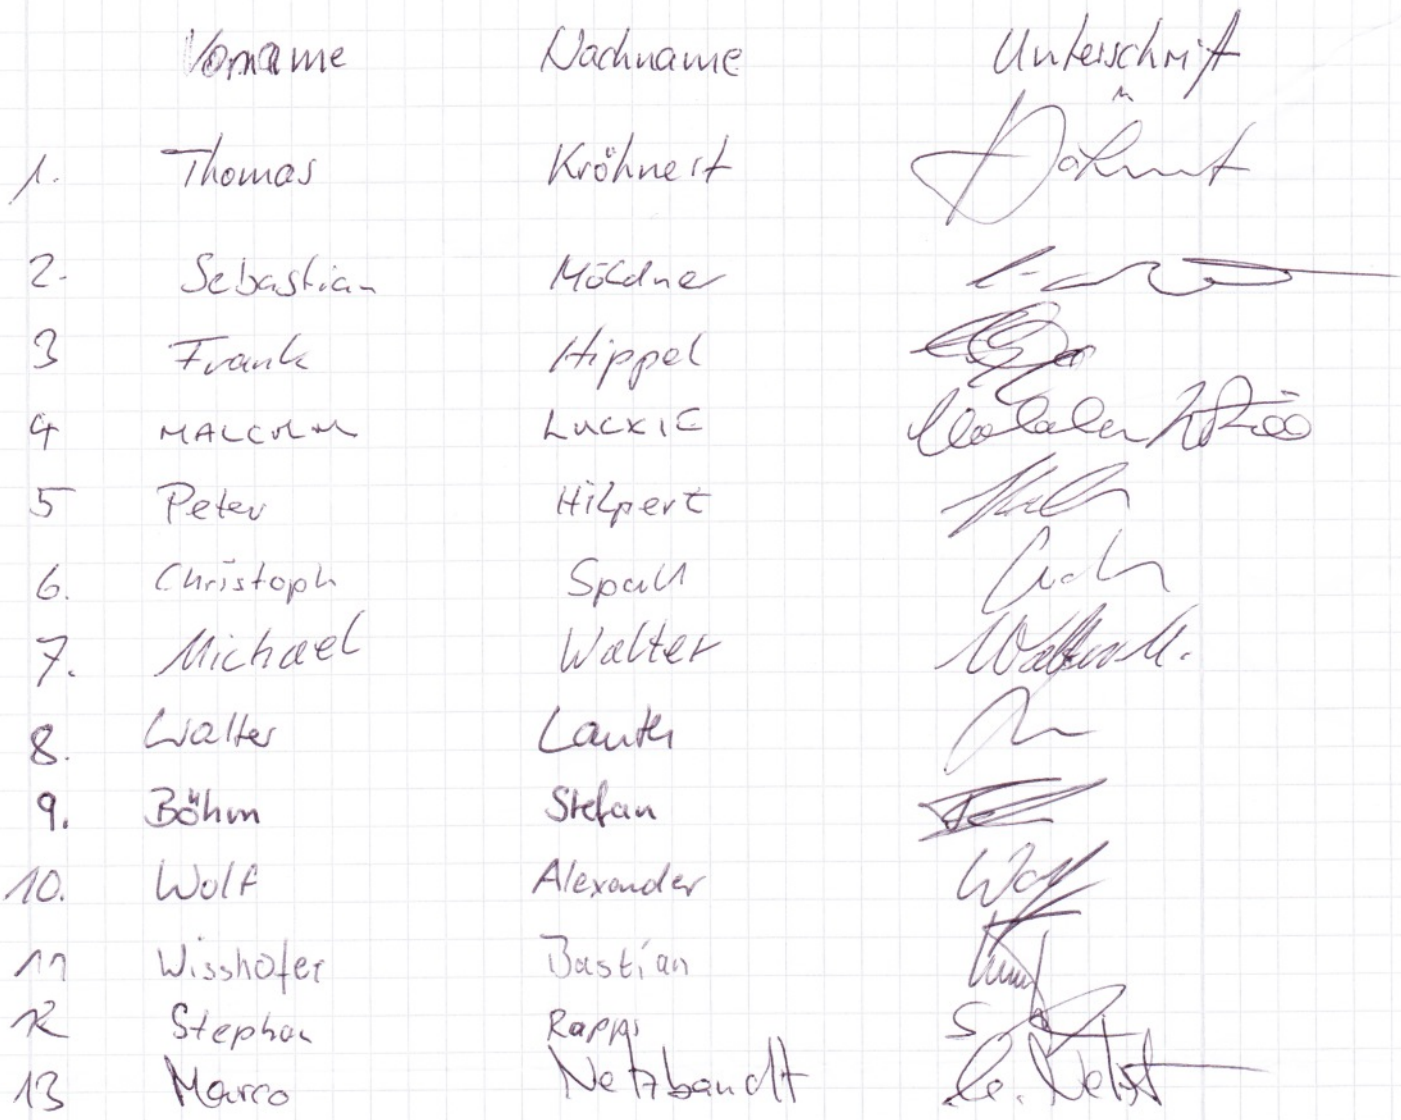 Vorname Nachname Unterschrift
1. Thomas Kröhnert
2. Sebastian Möldner
3 Frank Hippel
4 MALCOLM LUCKIE
5 Peter Hilpert
6. Christoph Spall
7. Michael Walter
8. Walter Lauth
9. Böhm Stefan
10. Wolf Alexander Wolf
11 Wisshofer Bastian
12 Stephan
13 Marco Netzbandt